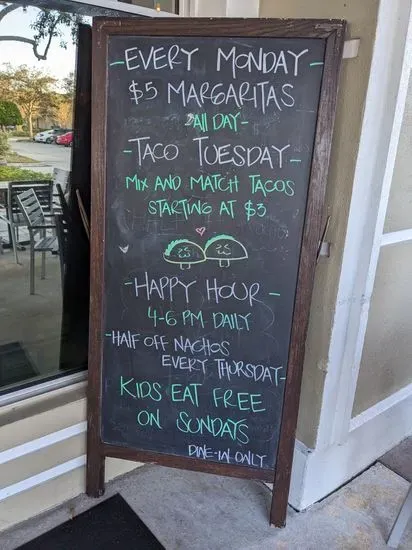 -EVERY MONDAY-
$5 MARGARITAS
-All DAY-
-TACO TUESDAY-
MIX AND MATCH TACOS
STARTING AT $3
-HAPPY HOUR-
4-6 PM DAILY
-HALF OFF NACHOS
EVERY THURSDAY-
KIDS EAT FREE
ON SUNDAYS
DINE-IN ONLY